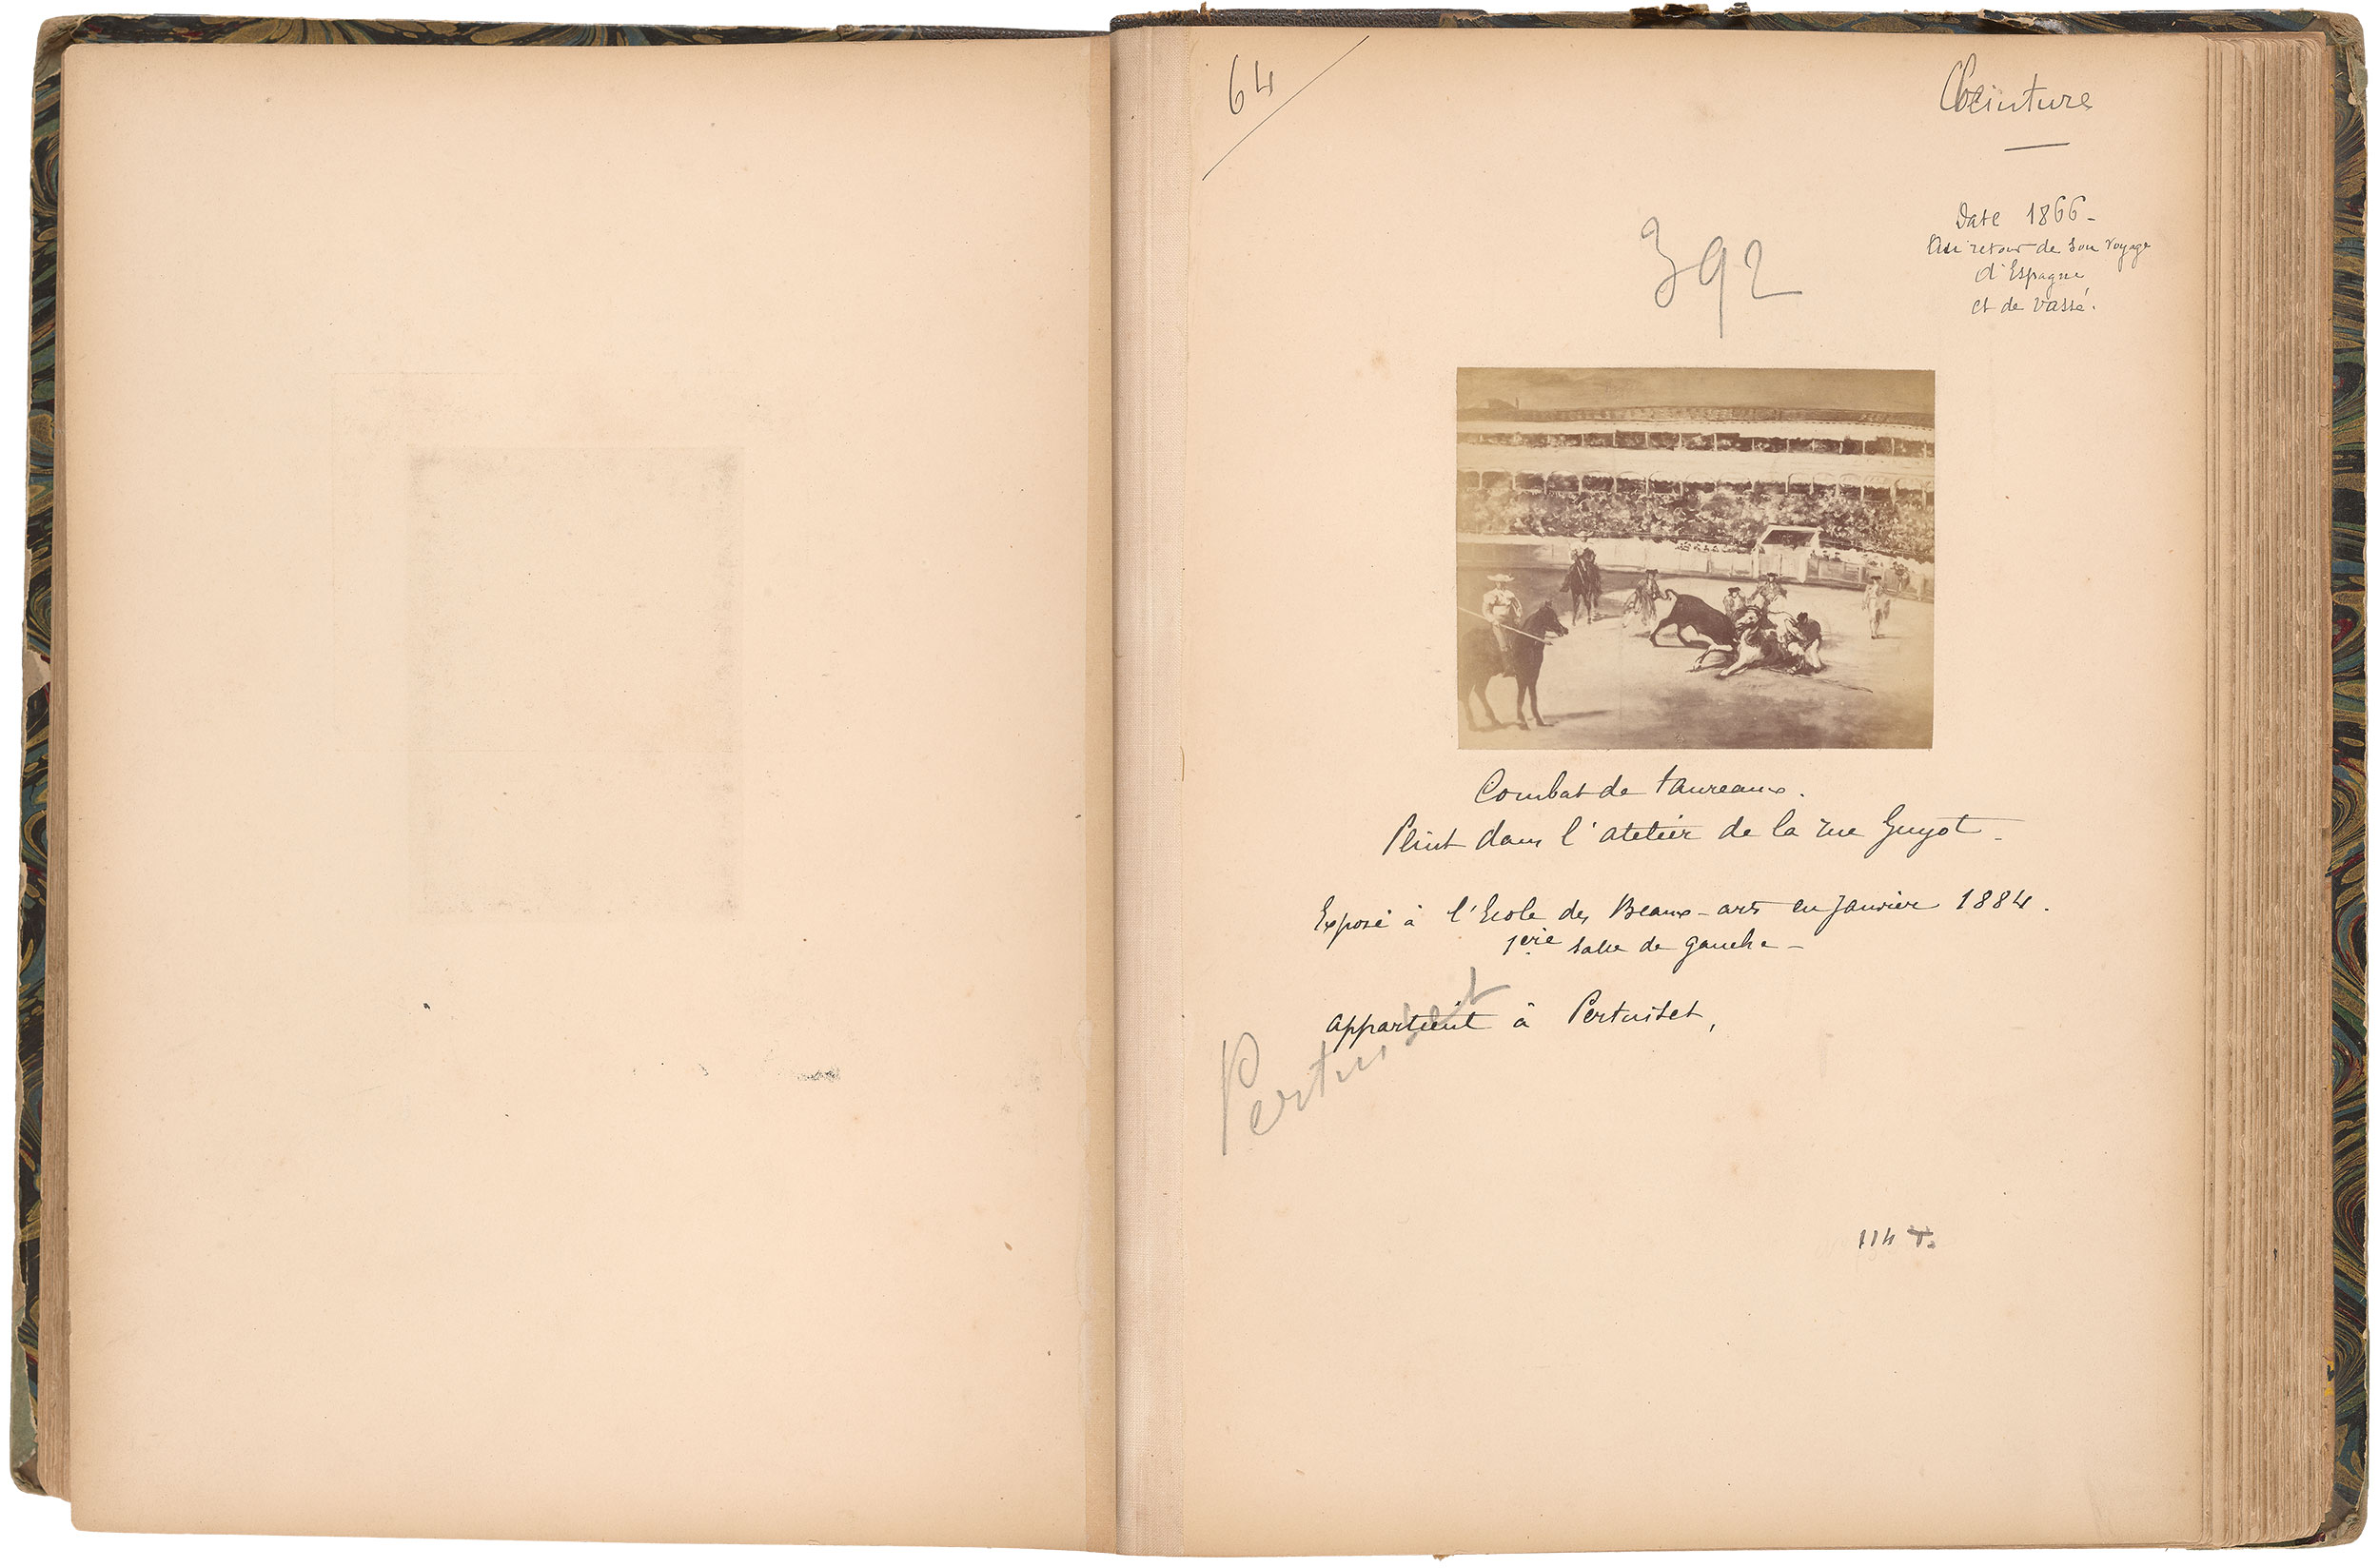 64
Peinture
392
Date 1866 -
Au retour de son voyage
d'Espagne
et de Vassé.
Combat de taureaux.
Peint dans l'atelier de la rue Guyot -
Exposé à l'Ecole des Beaux-arts en Janvier 1884.
1ere salle de gauche -
appartient à Pertuiset,
Pertuiset
114